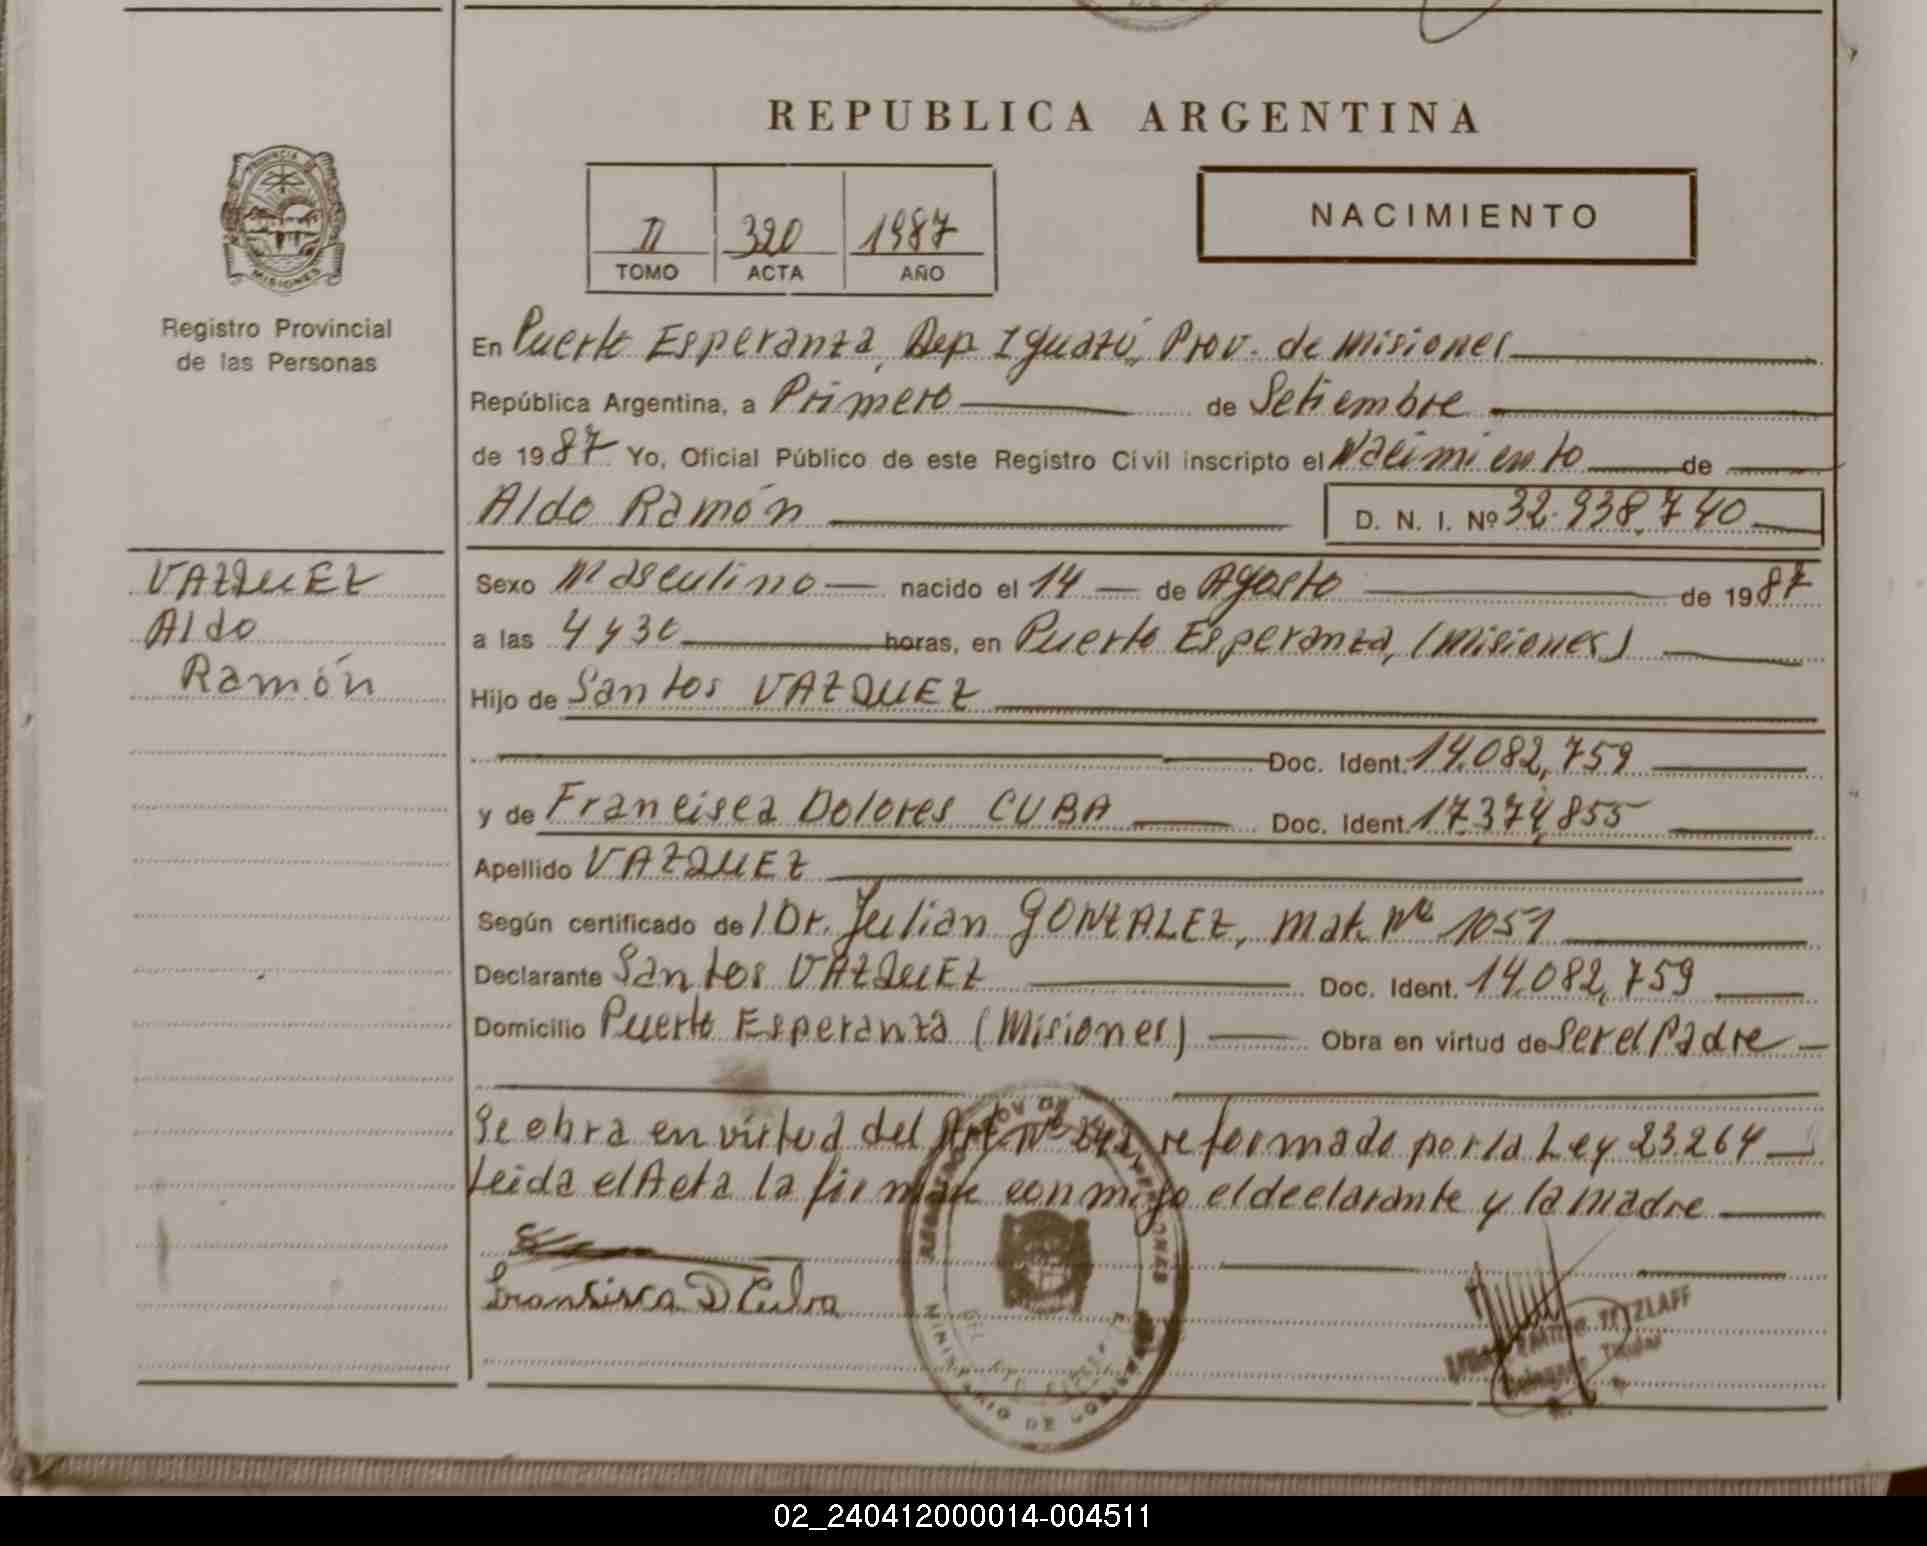 REPUBLICA ARGENTINA
PROVINCIA DE
MISIONES
Registro Provincial
de las Personas
II 320 1987
TOMO ACTA AÑO
NACIMIENTO
En Puerto Esperanza, Dep. Iguazú, Prov. de Misiones
República Argentina, a Primero de Setiembre
de 1987 Yo, Oficial Público de este Registro Civil inscripto el Nacimiento de
Aldo Ramón D. N. I. Nº 32.938.740
VAZQUEZ
Aldo
Ramón
Sexo Masculino nacido el 14 de Agosto de 1987
a las 4 y 30 horas, en Puerto Esperanza, (Misiones)
Hijo de Santos VAZQUEZ
Doc. Ident. 14.082,759
y de Francisca Dolores CUBA Doc. Ident. 17.374,855
Apellido VAZQUEZ
Según certificado de l Dr. Julian GONZALEZ, Mat. Nº 1051
Declarante Santos VAZQUEZ Doc. Ident. 14.082,759
Domicilio Puerto Esperanza (Misiones) Obra en virtud de Ser el Padre
Se obra en virtud del Art. Nº reformado por la Ley 23264
Leida el Acta la firman conmigo el declarante y la madre
Fransisca D Cuba
TETZLAFF
Titular
MINISTERIO DE GOBIERNO
02_240412000014-004511